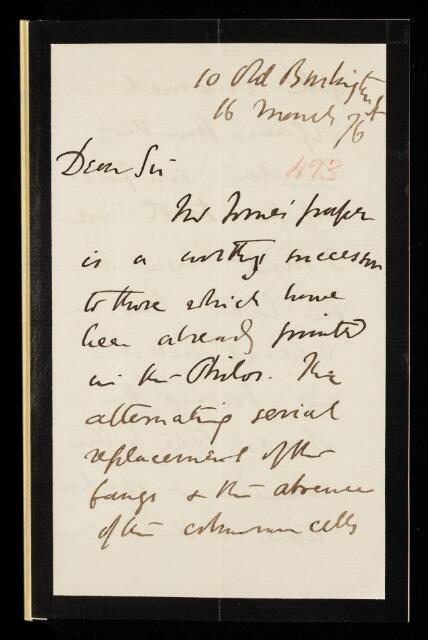 10 Old Burlington St
16 March 76
Dear Sir
493
Mr Tomes' paper
is a worthy successor
to those which have
been already printed
in the Philos. The
alternating serial
replacement of the
fangs & the absence
of the columnar cells